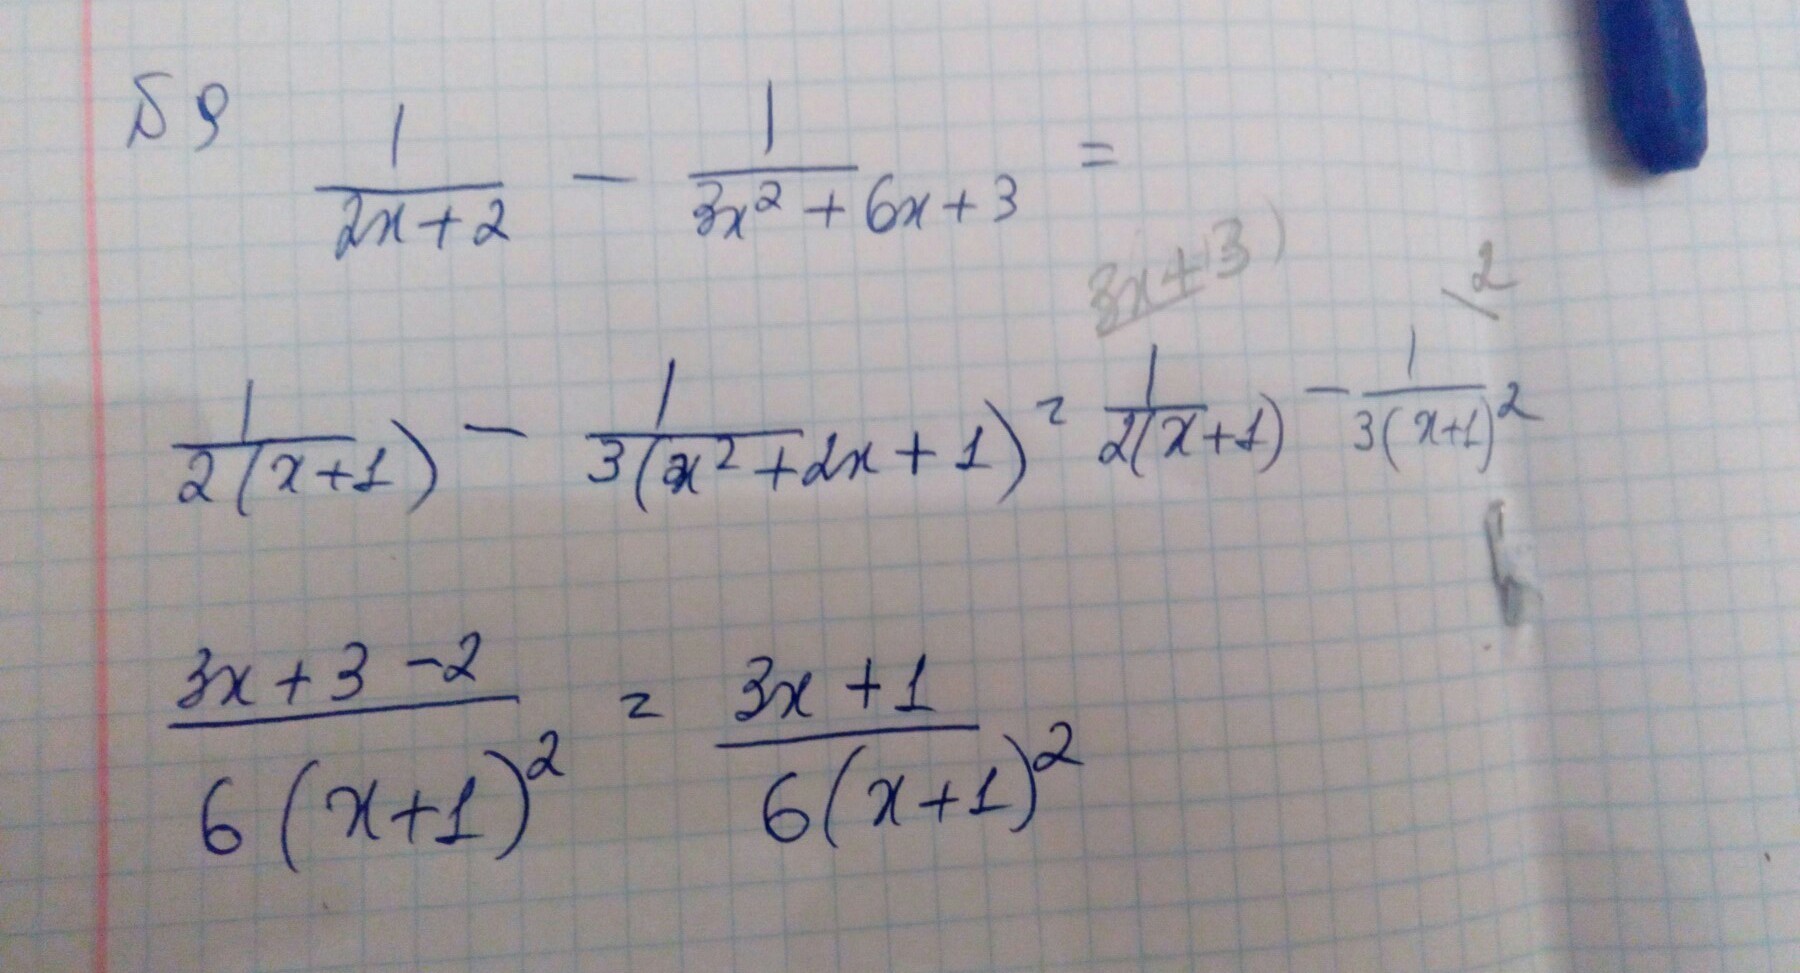 Б9 1/(2x+2) - 1/(3x²+6x+3) =
3x+3) \2
1/(2(x+1)) - 1/(3(x²+2x+1)) = 1/(2(x+1)) - 1/(3(x+1)²)
(3x+3-2)/(6(x+1)²) = (3x+1)/(6(x+1)²)